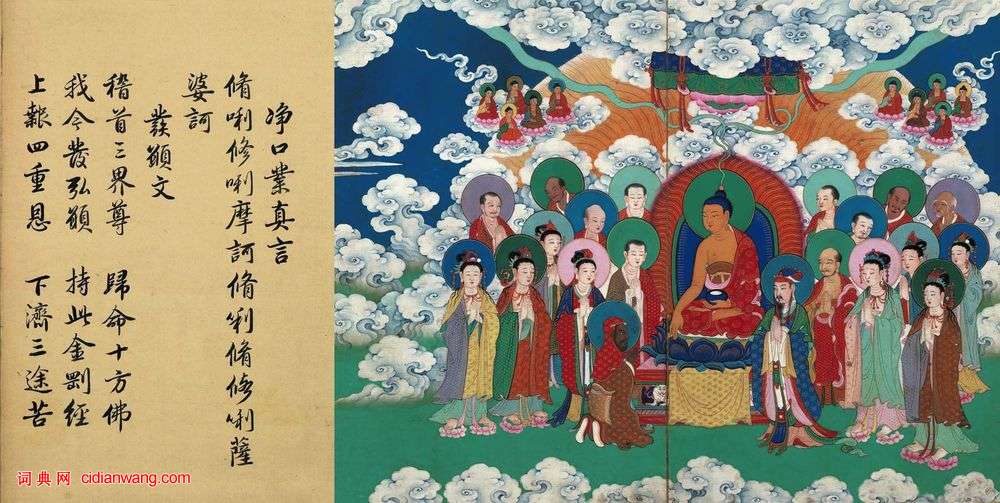 净口業真言
脩唎修唎摩訶脩唎脩修唎薩
婆訶
發願文
稽首三界尊 歸命十方佛
我今發弘願 持此金剛經
上報四重恩 下濟三途苦
词典网 cidianwang.com